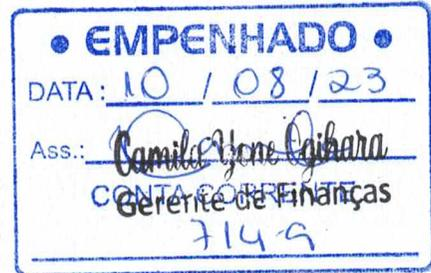 • EMPENHADO •
DATA: 10 / 08 / 23
Ass.: Camila Yone Ogihara
CONTA CORRENTE
Gerente de Finanças
714-9